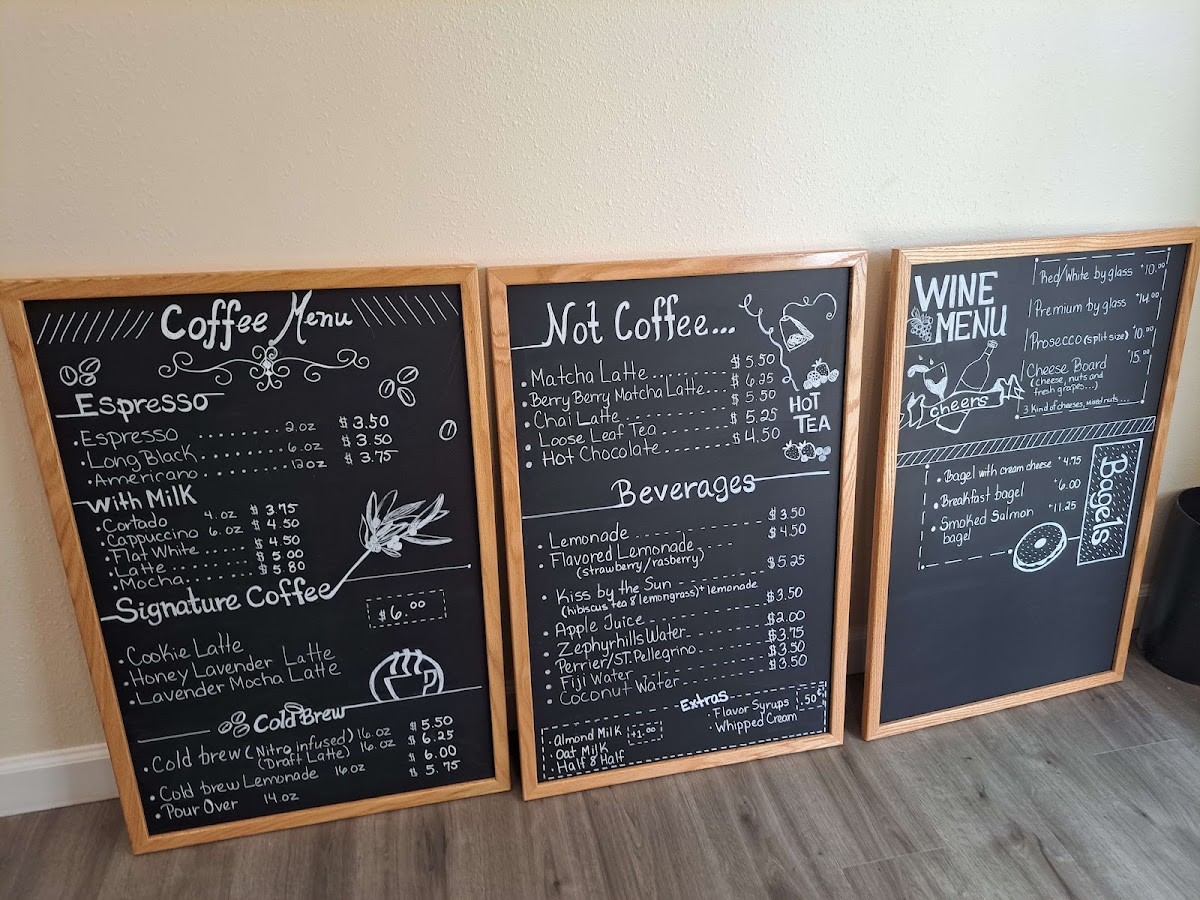 Coffee Menu
Espresso
• Espresso ........ 2oz $3.50
• Long Black ........ 6.oz $3.50
• Americano ........ 12oz $3.75
With Milk
• Cortado 4.oz $3.75
• Cappuccino 6.oz $4.50
• Flat White ..... $4.50
• Latte ....... $5.00
• Mocha....... $5.80
Signature Coffee
$6.00
• Cookie Latte
• Honey Lavender Latte
• Lavender Mocha Latte
Cold Brew
• Cold brew (Nitro infused) 16.oz $5.50
(Draft Latte) 16.oz $6.25
• Cold brew Lemonade 16oz $6.00
• Pour Over 14.oz $5.75
Not Coffee...
• Matcha Latte $5.50
• Berry Berry Matcha Latte $6.95
• Chai Latte $5.50
• Loose Leaf Tea $5.25
• Hot Chocolate $4.50
HOT
TEA
Beverages
• Lemonade $3.50
• Flavored Lemonade $4.50
(strawberry/rasberry)
• Kiss by the Sun $5.25
(hibiscus tea & lemongrass)+ lemonade
• Apple Juice $3.50
• Zephyrhills Water $2.00
• Perrier/ST. Pellegrino $3.75
• Fiji Water $3.50
• Coconut Water $3.50
Extras
• Almond Milk +1.00
• Oat Milk
• Half & Half
• Flavor Syrups .50¢
• Whipped Cream
WINE
MENU
cheers
Red/White by glass $10.00
Premium by glass $14.00
Prosecco (split size) $10.00
Cheese Board $15.00
(cheese, nuts and
fresh grapes...)
3 kind of cheeses, mixed nuts....
Bagels
• Bagel with cream cheese $4.75
• Breakfast bagel $6.00
• Smoked Salmon $11.25
bagel